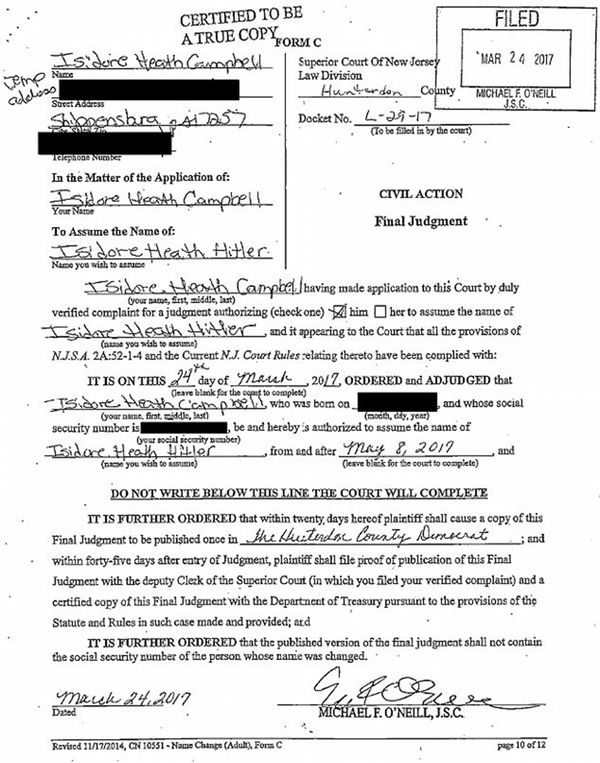 CERTIFIED TO BE
A TRUE COPY
FORM C
FILED
MAR 24 2017
MICHAEL F. O'NEILL
J.S.C.
Isidore Heath Campbell
Name
Temp
address
Street Address
Shippensburg PA 17257
Telephone Number
Superior Court Of New Jersey
Law Division
Hunterdon County
Docket No. L-29-17
(To be filled in by the court)
In the Matter of the Application of:
Isidore Heath Campbell
Your Name
To Assume the Name of:
Isidore Heath Hitler
Name you wish to assume
CIVIL ACTION
Final Judgment
Isidore Heath Campbell having made application to this Court by duly
(your name, first, middle, last)
verified complaint for a judgment authorizing (check one) ☒ him ☐ her to assume the name of
Isidore Heath Hitler, and it appearing to the Court that all the provisions of
(name you wish to assume)
N.J.S.A. 2A:52-1-4 and the Current N.J. Court Rules relating thereto have been complied with:
IT IS ON THIS 24th day of March, 2017, ORDERED and ADJUDGED that
(leave blank for the court to complete)
Isidore Heath Campbell, who was born on , and whose social
(your name, first, middle, last) (month, day, year)
security number is , be and hereby is authorized to assume the name of
(your social security number)
Isidore Heath Hitler, from and after May 8, 2017, and
(name you wish to assume) (leave blank for the court to complete)
DO NOT WRITE BELOW THIS LINE THE COURT WILL COMPLETE
IT IS FURTHER ORDERED that within twenty days hereof plaintiff shall cause a copy of this
Final Judgment to be published once in the Hunterdon County Democrat ; and
within forty-five days after entry of Judgment, plaintiff shall file proof of publication of this Final
Judgment with the deputy Clerk of the Superior Court (in which you filed your verified complaint) and a
certified copy of this Final Judgment with the Department of Treasury pursuant to the provisions of the
Statute and Rules in such case made and provided; and
IT IS FURTHER ORDERED that the published version of the final judgment shall not contain
the social security number of the person whose name was changed.
March 24, 2017
Dated
MICHAEL F. O'NEILL, J.S.C.
Revised 11/17/2014, CN 10551 - Name Change (Adult), Form C
page 10 of 12